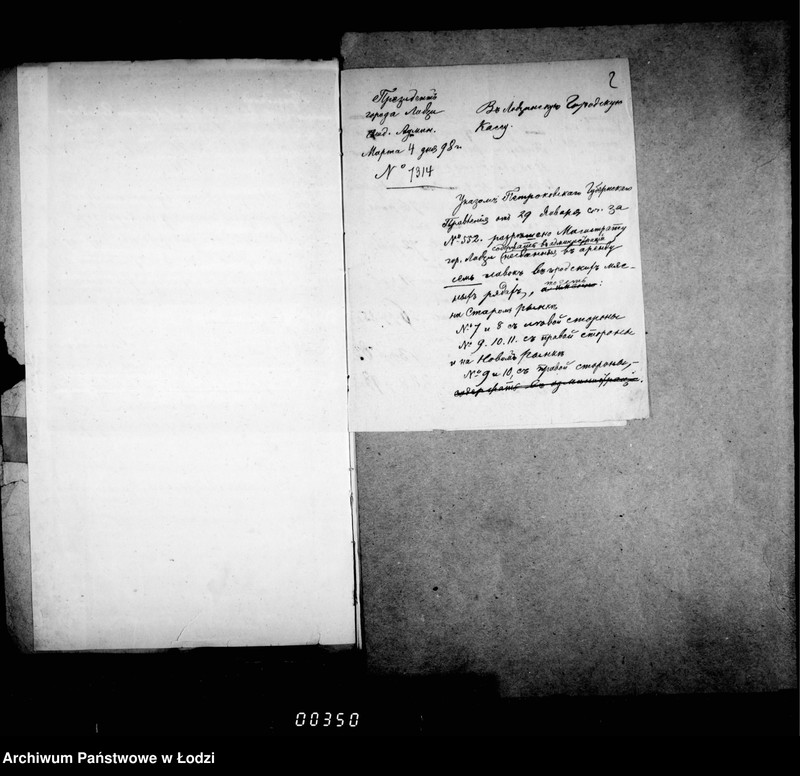 2
Президентъ
города Лодзи
Отд. Админ.
Марта 4 дня 98 г.
№ 1314
Въ Лодзинскую Городскую
Кассу.
Указомъ Петроковскаго Губернскаго
Правленія отъ 29 Января с.г. за
№ 552. разрѣшено Магистрату
содержать въ администраціи
гор. Лодзи въ аренду
семь лавокъ въ городскихъ мяс-
ныхъ рядахъ, а именно:
на Старомъ рынкѣ
№ 7 и 8 съ лѣвой стороны
№ 9. 10. 11. съ правой стороны
и на Новомъ рынкѣ
№ 9 и 10, съ правой стороны,-
содержать въ администраціи.
00350
Archiwum Państwowe w Łodzi